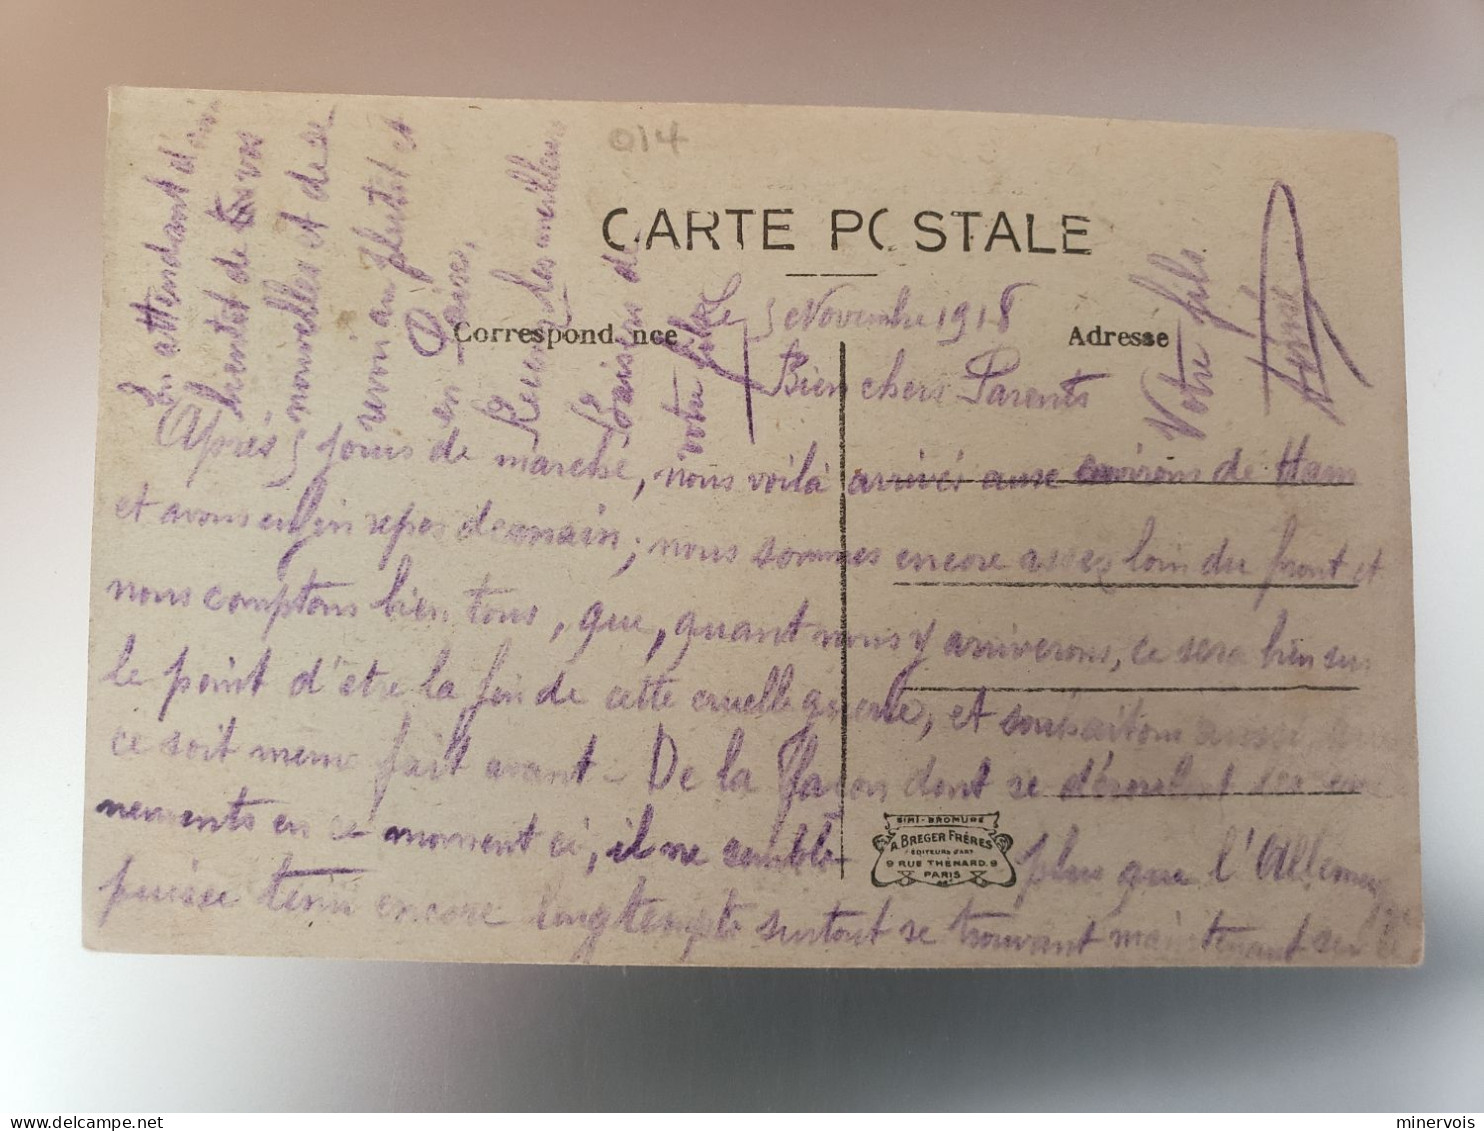 014
CARTE POSTALE
Correspondance
Adresse
Le 5 Novembre 1918
Bien chers Parents
Après 5 jours de marche, nous voilà arrivés aux environs de Ham
et avons enfin repos demain; nous sommes encore assez loin du front et
nous comptons bien tous, que, quant nous y arriverons, ce sera bien sur
le point d'être la fin de cette cruelle guerre, et souhaitons aussi
ce soit même fait avant - De la façon dont se déroulent
nements en ce moment ci, il ne semble plus que l'Allemag
puisse tenir encore longtemps surtout se trouvant maintenant
En attendant
bientôt de vos
nouvelles et de se
revoir au plutôt et
en paix,
Recevez les meilleurs
baisers de
votre fils
Votre fils.
SIMI-BROMURE
A. BREGER FRÈRES
ÉDITEURS D'ART
9 RUE THÉNARD. 9
PARIS
minervois